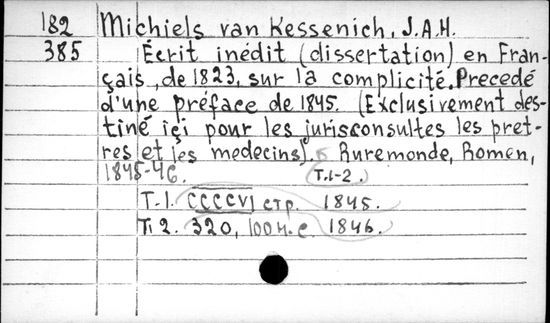 182 Michiels van Kessenich, J.A.H.
385 Écrit inédit (dissertation) en Fran-
çais, de 1823, sur la complicité. Precedé
d'une préface de 1845. (Exclusivement des-
tiné içi pour les jurisconsultes les pret-
res et les medecins). Ruremonde, Romen,
1845-46. T.1-2.
T.1. CCCCVI стр. 1845.
T. 2. 320, 100 н. с. 1846.